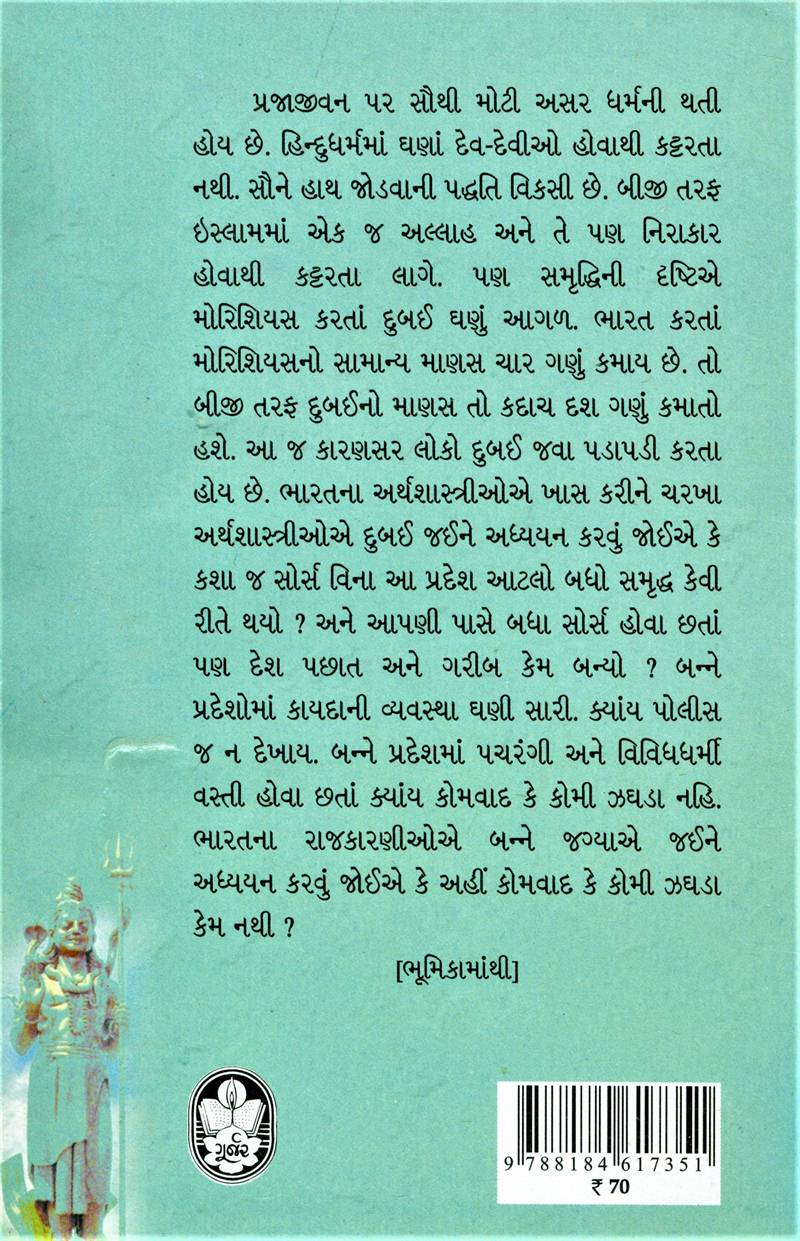 પ્રજાજીવન પર સૌથી મોટી અસર ધર્મની થતી
હોય છે. હિન્દુધર્મમાં ઘણાં દેવ-દેવીઓ હોવાથી કટ્ટરતા
નથી. સૌને હાથ જોડવાની પદ્ધતિ વિકસી છે. બીજી તરફ
ઇસ્લામમાં એક જ અલ્લાહ અને તે પણ નિરાકાર
હોવાથી કટ્ટરતા લાગે. પણ સમૃદ્ધિની દૃષ્ટિએ
મોરિશિયસ કરતાં દુબઈ ઘણું આગળ. ભારત કરતાં
મોરિશિયસનો સામાન્ય માણસ ચાર ગણું કમાય છે. તો
બીજી તરફ દુબઈનો માણસ તો કદાચ દશ ગણું કમાતો
હશે. આ જ કારણસર લોકો દુબઈ જવા પડાપડી કરતા
હોય છે. ભારતના અર્થશાસ્ત્રીઓએ ખાસ કરીને ચરખા
અર્થશાસ્ત્રીઓએ દુબઈ જઈને અધ્યયન કરવું જોઈએ કે
કશા જ સોર્સ વિના આ પ્રદેશ આટલો બધો સમૃદ્ધ કેવી
રીતે થયો ? અને આપણી પાસે બધા સોર્સ હોવા છતાં
પણ દેશ પછાત અને ગરીબ કેમ બન્યો ? બન્ને
પ્રદેશોમાં કાયદાની વ્યવસ્થા ઘણી સારી. ક્યાંય પોલીસ
જ ન દેખાય. બન્ને પ્રદેશમાં પચરંગી અને વિવિધધર્મી
વસ્તી હોવા છતાં ક્યાંય કોમવાદ કે કોમી ઝઘડા નહિ.
ભારતના રાજકારણીઓએ બન્ને જગ્યાએ જઈને
અધ્યયન કરવું જોઈએ કે અહીં કોમવાદ કે કોમી ઝઘડા
કેમ નથી ?
[ભૂમિકામાંથી]
ગૂર્જર
9 788184 617351
₹ 70